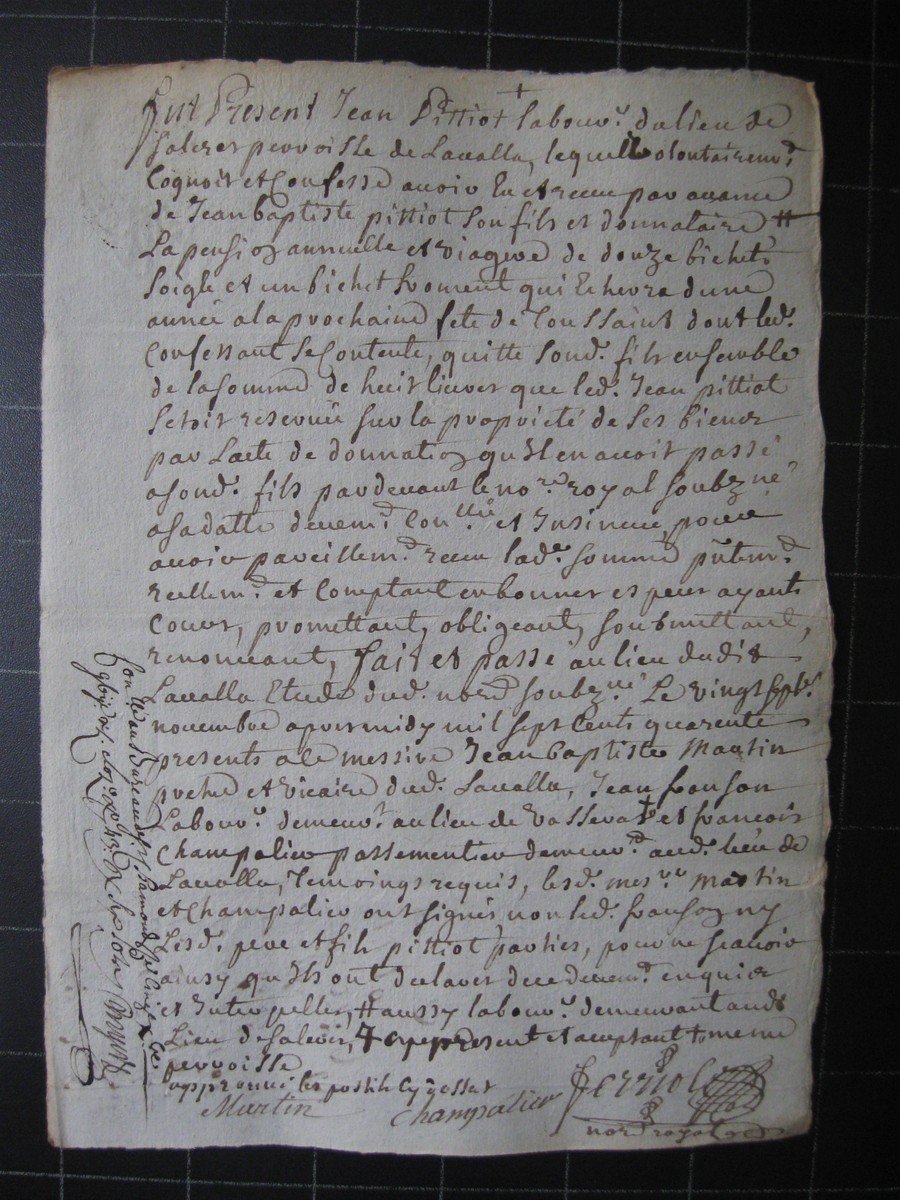 Fut Present Jean Pittiot + labour. du lieu de
Salezes perroisse de Lavalla, lequel volontairemt.
Cognoit et Confesse avoir Eu et receu par avance
de Jean baptiste pittiot son fils et donnataire #
La pension annuelle et viagere de douze bichets
Soigle et un bichet froment qui Echerra dune
année a la prochaine fete de Toussaint dont led.
Confessant se Contente, quitte sond. fils ensemble
de la somme de huit livres que led. Jean pittiot
setoit reservée sur la proprieté de ses biens
par Lacte de donnation qu'il en avoit passé
a sond. fils pardevant le nore. royal soubzné
a sa datte devemt. Conllé et Insinué, pour
avoir pareillemt. receu lade. somme pñtemt.
reellemt. et Comptant en bonnes especes ayant
Cours, promettant, obligeant, soubmettant,
renonceant, fait et passé au lieu dudit
Lavalla Etude dud. nore. soubzné Le vingt sept.
novembre apres midy mil sept Cents quarente
presents a ce messire Jean baptiste Martin
pretre et vicaire dud. Lavalla, Jean fronson
Labour. demeurt. au lieu de et francois
Champalier passementier demeurt. aud. lieu de
Lavalla, Temoings requis, lesd. messre. Martin
et Champalier ont signés non led. ny
Lesd. pere et fils pittiot parties, pour ne scavoir
ainsy qu'ils ont declaré de ce devemt. enquis
et Interpellés, # aussy labour. demeurant aud.
Lieu de Salezes, + cy present et acceptant + meme
perroisse
approuvé les postilles
Martin Champalier
nore. royal
Con. au bureau de St. Chamond